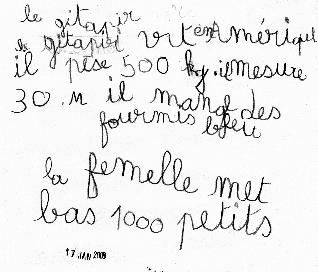 le gitapir
le gitapir vit en Amérique
il pèse 500 kg. il mesure
30. M il mange des
fourmis bleu
la femelle met
bas 1000 petits
17 JAN 2009